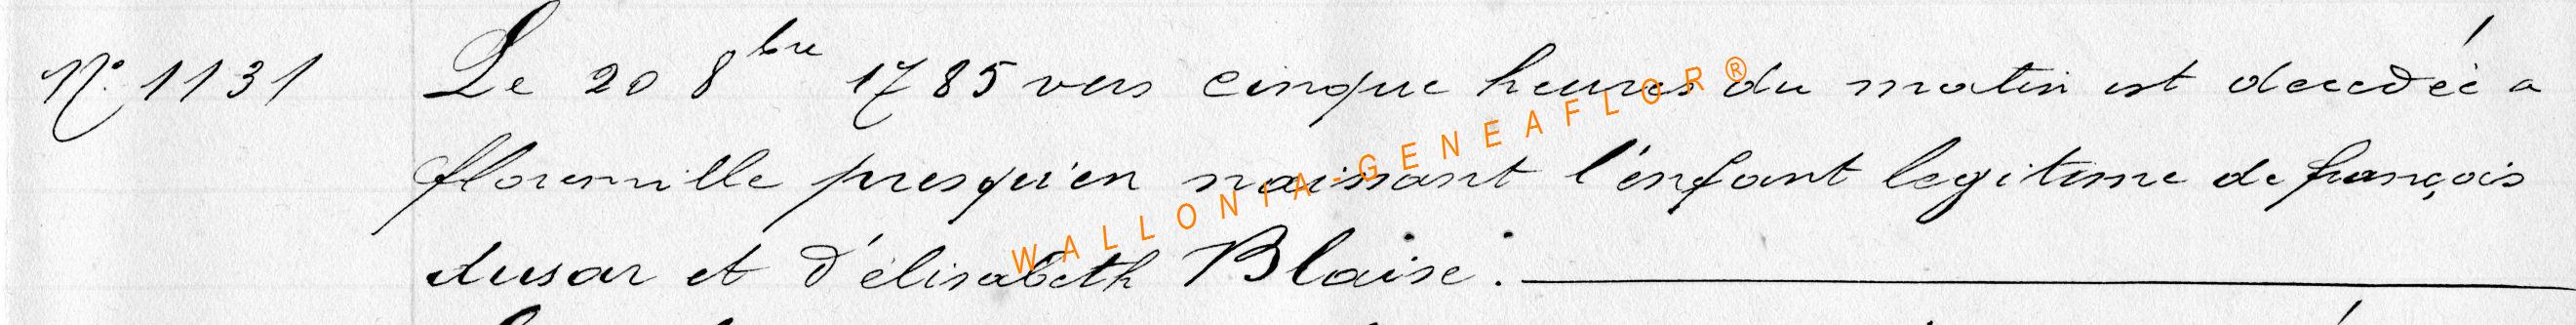 N° 1131 Le 20 8bre 1785 vers cinque heures du matin est decedée a
florenville presqu'en naissant l'énfant legitime de françois
dusar et d'élisabeth Blaise.
WALLONIA-GENEAFLOR®